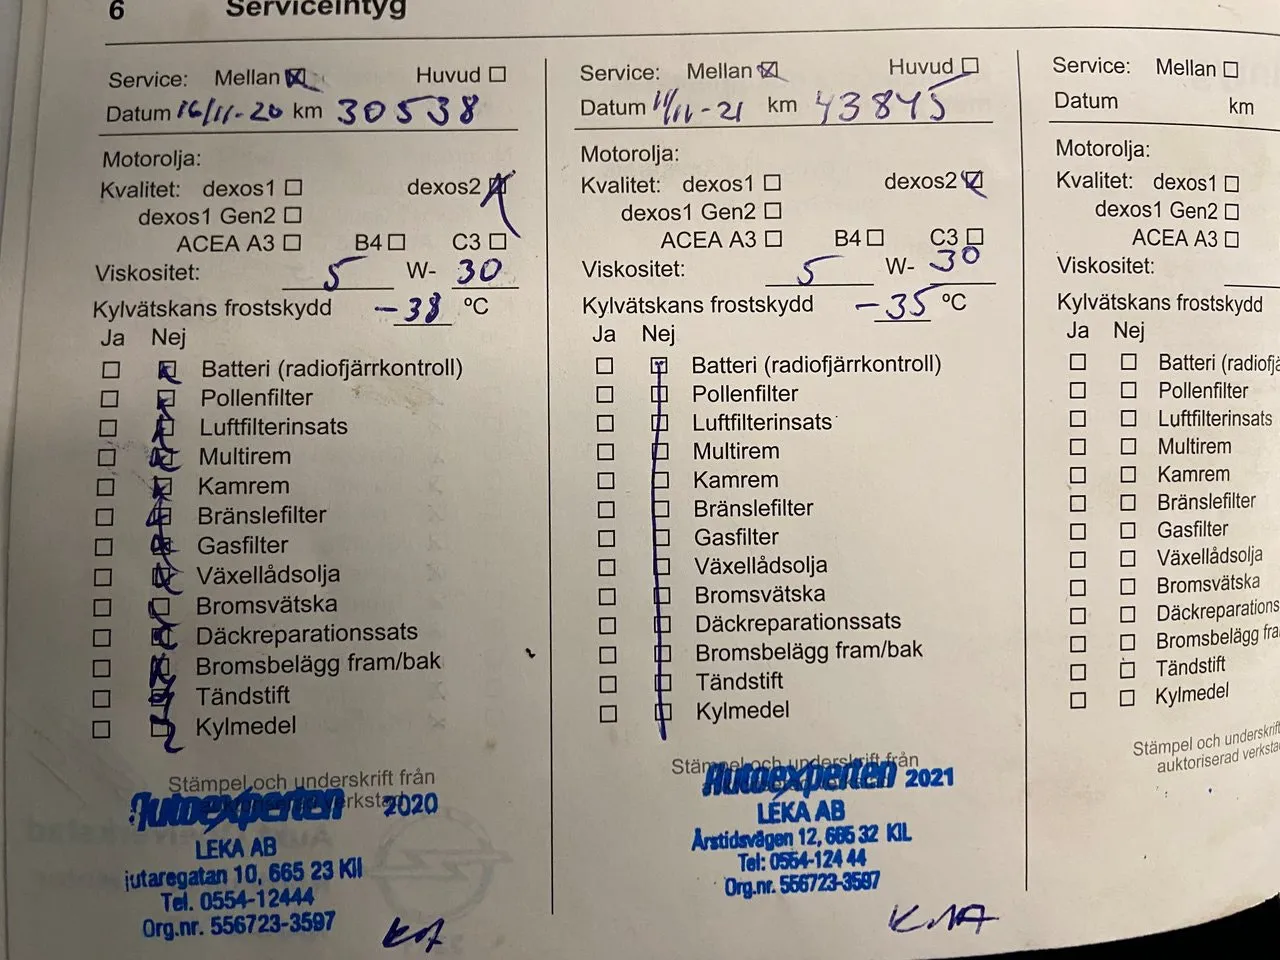 6 Serviceintyg
Service: Mellan ☒ Huvud ☐
Datum 16/11-20 km 30538
Motorolja:
Kvalitet: dexos1 ☐ dexos2 ☒
dexos1 Gen2 ☐
ACEA A3 ☐ B4 ☐ C3 ☐
Viskositet: 5 W- 30
Kylvätskans frostskydd -38 ºC
Ja Nej
Batteri (radiofjärrkontroll)
Pollenfilter
Luftfilterinsats
Multirem
Kamrem
Bränslefilter
Gasfilter
Växellådsolja
Bromsvätska
Däckreparationssats
Bromsbelägg fram/bak
Tändstift
Kylmedel
Stämpel och underskrift från
Autoexperten verkstad 2020
LEKA AB
jutaregatan 10, 665 23 Kil
Tel. 0554-12444
Org.nr. 556723-3597
Service: Mellan ☒ Huvud ☐
Datum 11/11-21 km 43845
Motorolja:
Kvalitet: dexos1 ☐ dexos2 ☒
dexos1 Gen2 ☐
ACEA A3 ☐ B4 ☐ C3 ☐
Viskositet: 5 W- 30
Kylvätskans frostskydd -35 ºC
Ja Nej
Batteri (radiofjärrkontroll)
Pollenfilter
Luftfilterinsats
Multirem
Kamrem
Bränslefilter
Gasfilter
Växellådsolja
Bromsvätska
Däckreparationssats
Bromsbelägg fram/bak
Tändstift
Kylmedel
Stämpel och underskrift från
Autoexperten 2021
LEKA AB
Årstidsvägen 12, 665 32 KIL
Tel: 0554-124 44
Org.nr. 556723-3597
Service: Mellan ☐
Datum km
Motorolja:
Kvalitet: dexos1 ☐
dexos1 Gen2 ☐
ACEA A3 ☐
Viskositet:
Kylvätskans frostskydd
Ja Nej
Batteri (radiofjä
Pollenfilter
Luftfilterinsats
Multirem
Kamrem
Bränslefilter
Gasfilter
Växellådsolja
Bromsvätska
Däckreparations
Bromsbelägg fra
Tändstift
Kylmedel
Stämpel och underskrift
auktoriserad verksta